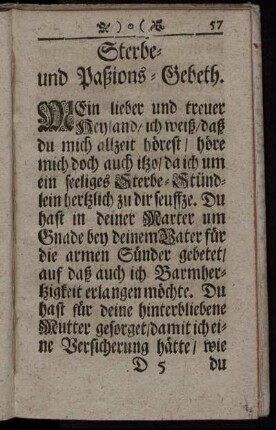 )o( 57
Sterbe-
und Paßions-Gebeth.
MEin lieber und treuer
Heyland/ ich weiß/ daß
du mich allzeit hörest/ höre
mich doch auch itzo/ da ich um
ein seeliges Sterbe-Stünd-
lein hertzlich zu dir seuffze. Du
hast in deiner Marter um
Gnade bey deinem Vater für
die armen Sünder gebetet/
auf daß auch ich Barmher-
tzigkeit erlangen möchte. Du
hast für deine hinterbliebene
Mutter gesorget/ damit ich ei-
ne Versicherung hätte/ wie
D 5 du